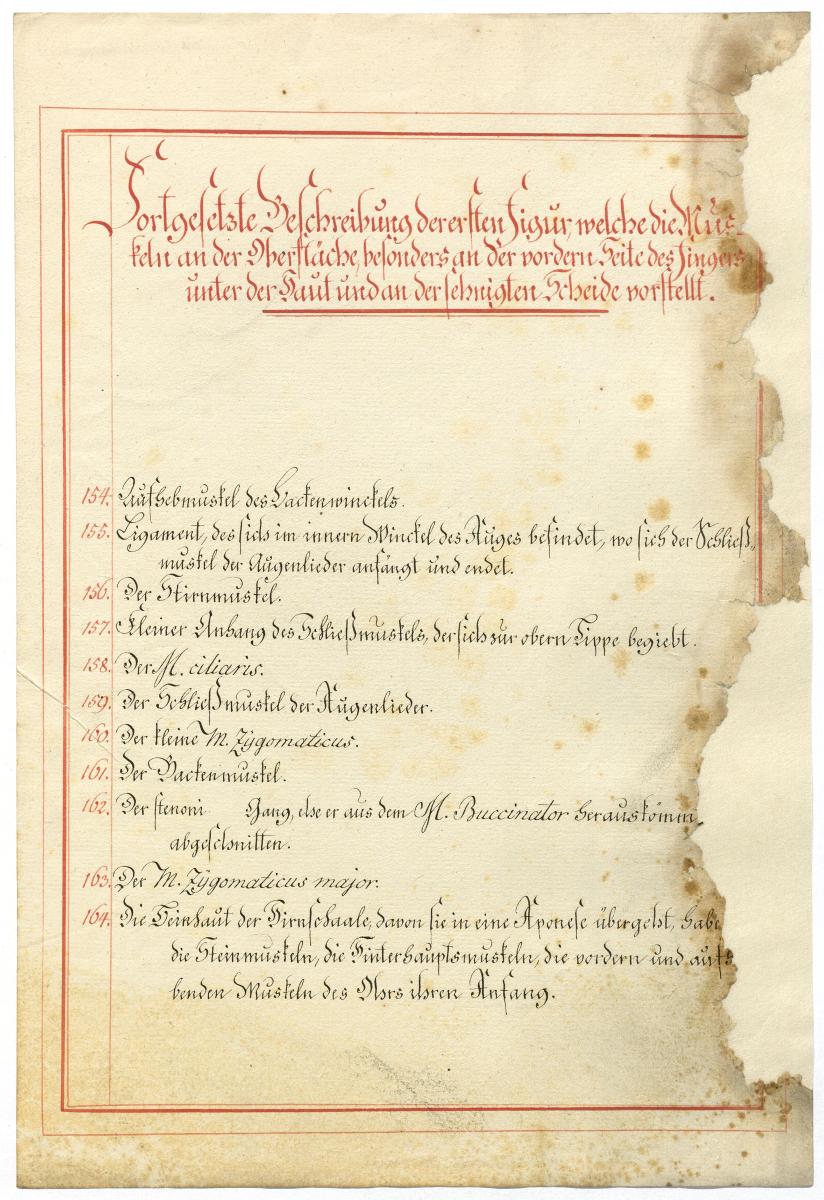 Fortgesetzte Beschreibung der ersten Figur, welche die Mus-
keln an der Oberfläche, besonders an der vordern Seite des Fingers
unter der Haut und an der sehnigten Scheide vorstellt.
154. Aufhebmuskel des Backenwinckels.
155. Ligament, des sich im innern Winckel des Auges befindet, wo sich der Schließ-
muskel der Augenlieder anfängt und endet.
156. Der Stirnmuskel.
157. Kleiner Anhang des Schließmuskels, der sich zur obern Lippe begiebt.
158. Der M. ciliaris.
159. Der Schließmuskel der Augenlieder.
160. Der kleine M. Zygomaticus.
161. Der Backenmuskel.
162. Der stenoni Gang, ehe er aus dem M. Buccinator herauskömm
abgeschnitten.
163. Der M. Zygomaticus major.
164. Die Beinhaut der Hirnschaale, davon sie in eine Aponese übergeht, habe
die Steinmuskeln, die Hinterhauptsmuskeln, die vordern und aufh
benden Muskeln des Ohrs ihren Anfang.